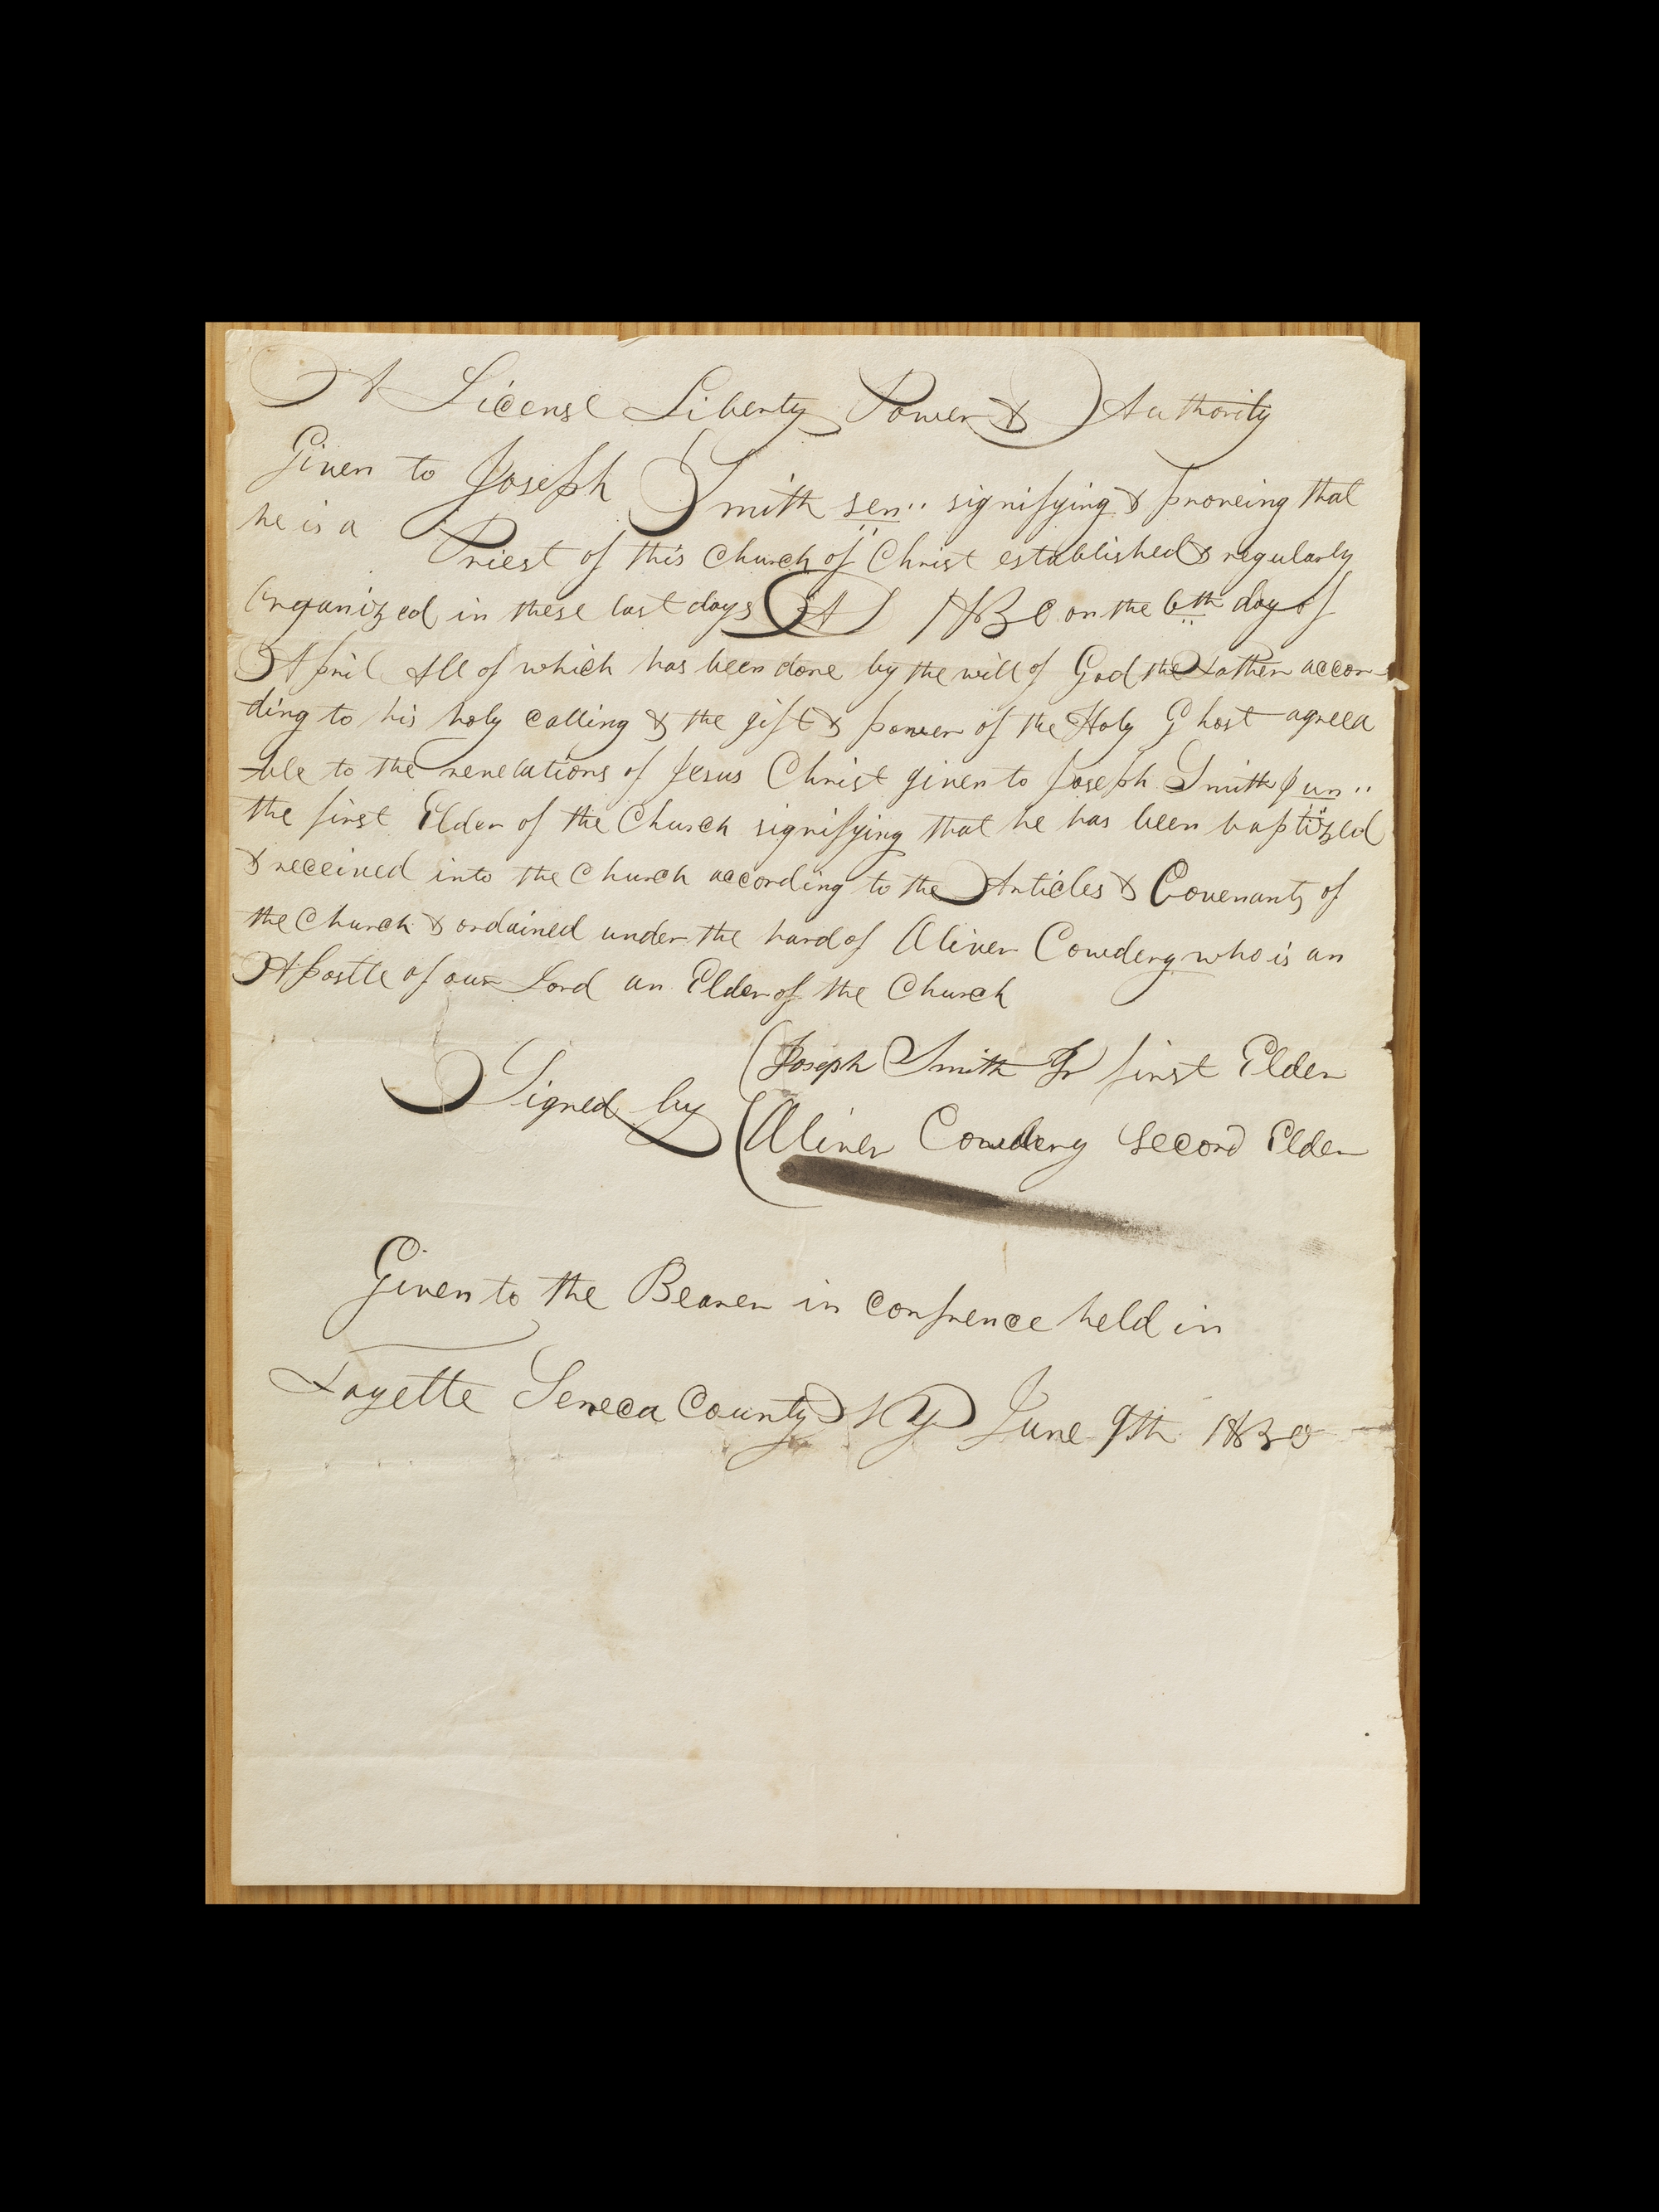 A License Liberty Power & Authority
Given to Joseph Smith sen.. signifying & proveing that
he is a Priest of this Church of Christ established & regularly
Organized in these last days A D 1830 on the 6th day of
April All of which has been done by the will of God the Father accor-
ding to his holy calling & the gift & power of the Holy Ghost agreea
-ble to the revelations of Jesus Christ given to Joseph Smith jun..
the first Elder of the Church signifying that he has been baptized
& received into the Church according to the Articles & Covenants of
the Church & ordained under the hand of Oliver Cowdery who is an
Apostle of our Lord an Elder of the Church
Signed by
Joseph Smith Jr first Elder
Oliver Cowdery Second Elder
Given to the Bearer in confrence held in
Fayette Seneca County N Y June 9th 1830